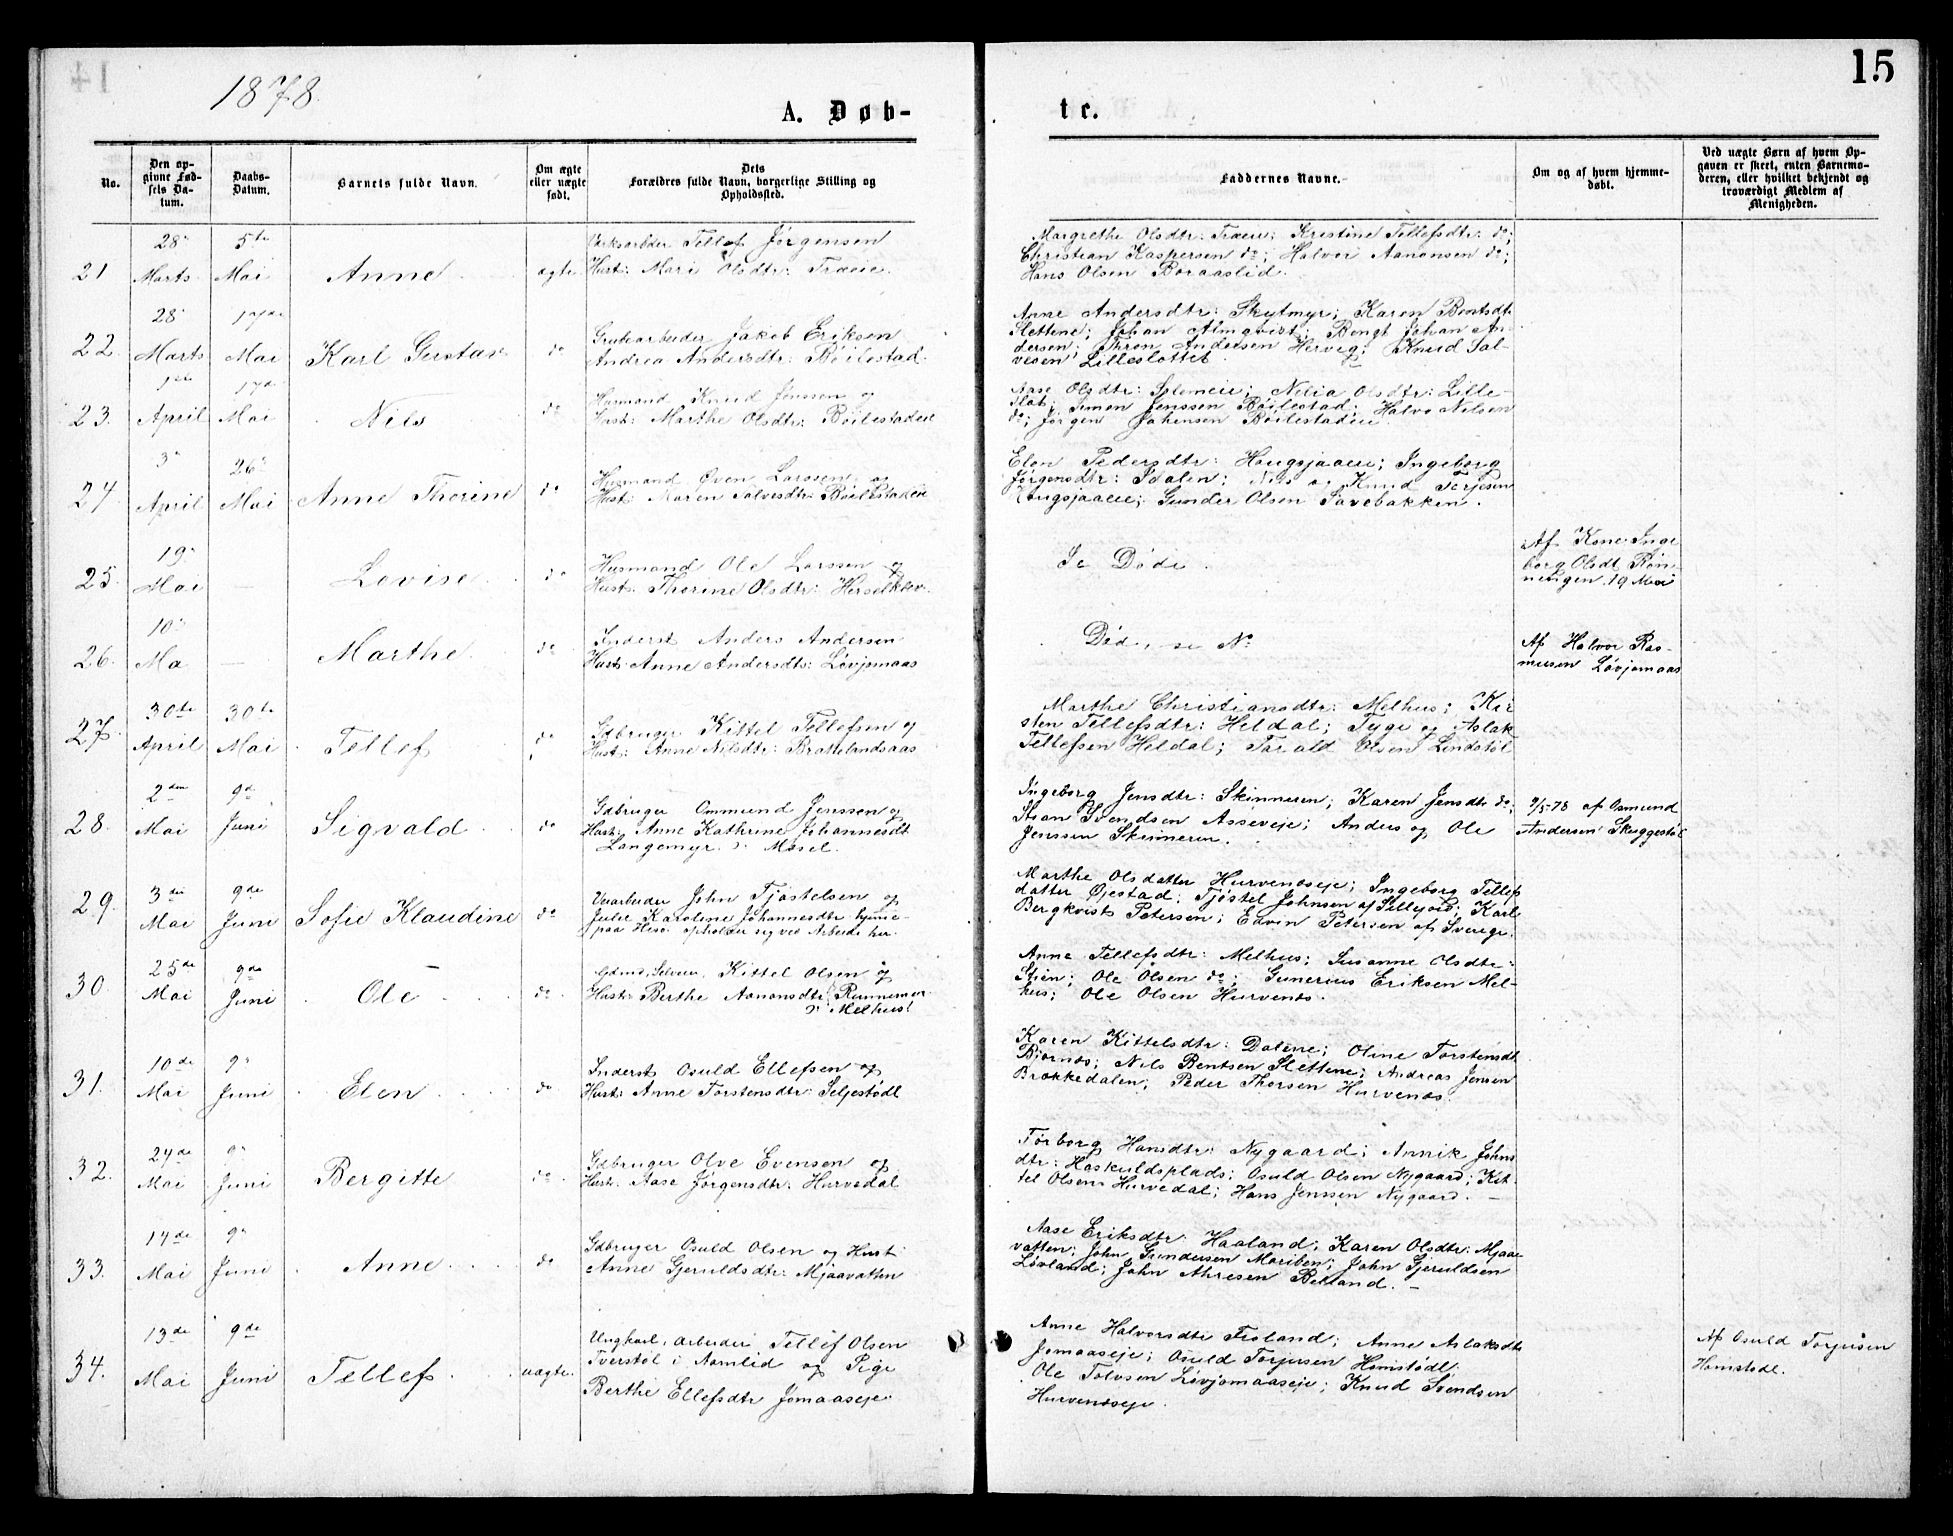 1878.
15
A. Døb-
te.
No.
Den op-
givne Fød-
sels Da-
tum.
Daabs-
Datum.
Barnets fulde Navn.
Om ægte
eller uægte
født.
Dets
Forældres fulde Navn, borgerlige Stilling og
Opholdssted.
Faddernes Navne.
Om og af hvem hjemme-
døbt.
Ved uægte Børn af hvem Op-
gaven er skeet, enten Barnemo-
deren, eller hvilket bekjendt og
troværdigt Medlem af
Menigheden.
21
28
Marts
5te
Mai
Anne
ægte
Værksarbder Tellef Jørgensen
Hust: Mari Olsdtr: Træeie.
Margrethe Olsdtr: Træeie; Kristine Tellefsdtr: do;
Christian Kaspersen do; Halvor Aanonsen do;
Hans Olsen Boraaslid.
22
28
Marts
17de
Mai
Karl Gustav
do
Grubearbeider Jakob Eriksen
Andrea Andersdtr: Bøilestad.
Anne Andersdtr: Skytmyr; Karen Bentsdt:
Slettene; Johan Almqvist; Bengt Johan An-
dersen; Thron Andersen Hervig; Knud Sal-
vesen Lilleslottet.
23.
1ste
April
17de
Mai
Nils
do
Husmand Knud Jenssen og
Hust: Marthe Olsdtr: Bøilestadeie
Aase Olsdtr: Solemeie; Nilia Olsdtr: Lille-
slot; Simon Jenssen Bøilestad; Halvo Nilsen
do; Jørgen Johensen Bøilestadeie.
24.
3
April
26
Mai
Anne Thorine
do
Husmand Øven Larssen og
Hust: Maren Salvesdtr: Bøilestadeie
Elen Pedersdtr: Haugsjaaeie; Ingeborg
Jørgensdtr: Idalen; Nils og Knud Terjesen
Haugsjaaeie; Gunder Olsen Savebakken.
25.
19
Mai
—
Lovise
do
Husmand Ole Larssen og
Hust: Thorine Olsdtr: Herselkleiv.
Se Døde.
Af Kone Inge
borg Olsdt Røn-
ningen 19 Mai
26.
10
Ma
—
Marthe
do
Inderst Anders Andersen
Hust: Anne Andersdtr: Løvjomaas
Død, se N:
Af Halvor Ras-
mussen Løvjomaas
27.
30te
April
30te
Mai
Tellef
do
Gdbruger Kittel Tellefsen og
Hust: Anne Nilsdtr: Brattelandsaas
Marthe Christiansdtr: Melhus; Kir
sten Tellefsdtr: Heldal; Tyge og Aslak
Tellefsen Heldal; Tarald Olsen Lindstøl
28.
2den
Mai
9de
Juni
Sigvald
do
Gdbruger Ommund Jenssen og
Hust: Anne Kathrine Johannesdt
Langemyr Mosel.
Ingeborg Jensdtr: Skinneren; Karen Jensdtr do;
Svendsen Asseveje; Anders og Ole
Jenssen Skinneren.
9/5-78 af Osmund
Andersen Skuggestøl
29.
3die
Mai
9de
Juni
Sofie Klaudine
do
Veiarbeider John Tjøstelsen og
Julie Karoline Johannesdtr hjemme-
paa Hisø opholder sig ved Arbeide her.
Marthe Olsdatter Hurvenæseje; Ingeborg Tellefs
datter Øiestad; Tjøstel Johnsen af Sillejord; Karl
Bergkvist Petersen; Edvin Petersen af Sverige.
30.
25de
Mai
9de
Juni
Ole
do
Gdmd, Selveier, Kittel Olsen og
Hust: Berthe Aanonsdtr: Rannemyr
Melhus!
Anne Tellefsdtr: Melhus; Susanne Olsdtr:
Stien; Ole Olsen do; Gunerius Eriksen Mel-
hus; Ole Olsen Hurvenæs.
31.
10de
Mai
9
Juni
Elen
do
Inderst Osuld Ellefsen og
Hust: Anne Torstensdtr: Seljestødl
Karen Kittelsdtr: Dalene; Oline Torstensdt
Bjørnæs; Nils Bentsen Slettene; Andreas Jensen
Brækkedalen; Peder Thorsen Hurvenæs.
32.
24de
Mai
9
Juni
Bergitte
do
Gdbruger Olve Evensen og
Hust: Aase Jørgensdtr: Hurvedal
Torborg Hansdtr: Nygaard; Annik Johns
dtr: Haskuldsplads; Osuld Olsen Nygaard; Kit-
tel Olsen Hurvedal; Hans Jenssen Nygaard. —
33.
14de
Mai
9
Juni
Anne
do
Gdbruger Osuld Olsen og Hust:
Anne Gjeruldsdtr: Mjaavathn
Aase Eriksdtr: Haaland; Karen Olsdtr: Mjaa-
vatten; John Gundersen Moriben; John Gjeruldsen
Løvland; John Belland. —
34.
13de
Mai
9de
Juni
Tellef
uægte.
Ungkarl, Arbeider Tellef Olsen
Tverstøl i Aamlid og Pige
Berthe Ellefsdtr Jomaaseje
Anne Halvorsdtr Froland; Anne Aslaksdtr
Jomaaseje; Osuld Torjusen Homstødl;
Ole Tolvsen Løvjomaaseje; Knud Svendsen
Hurvenæseje.
Af Osuld Torjusen
Homstødl.